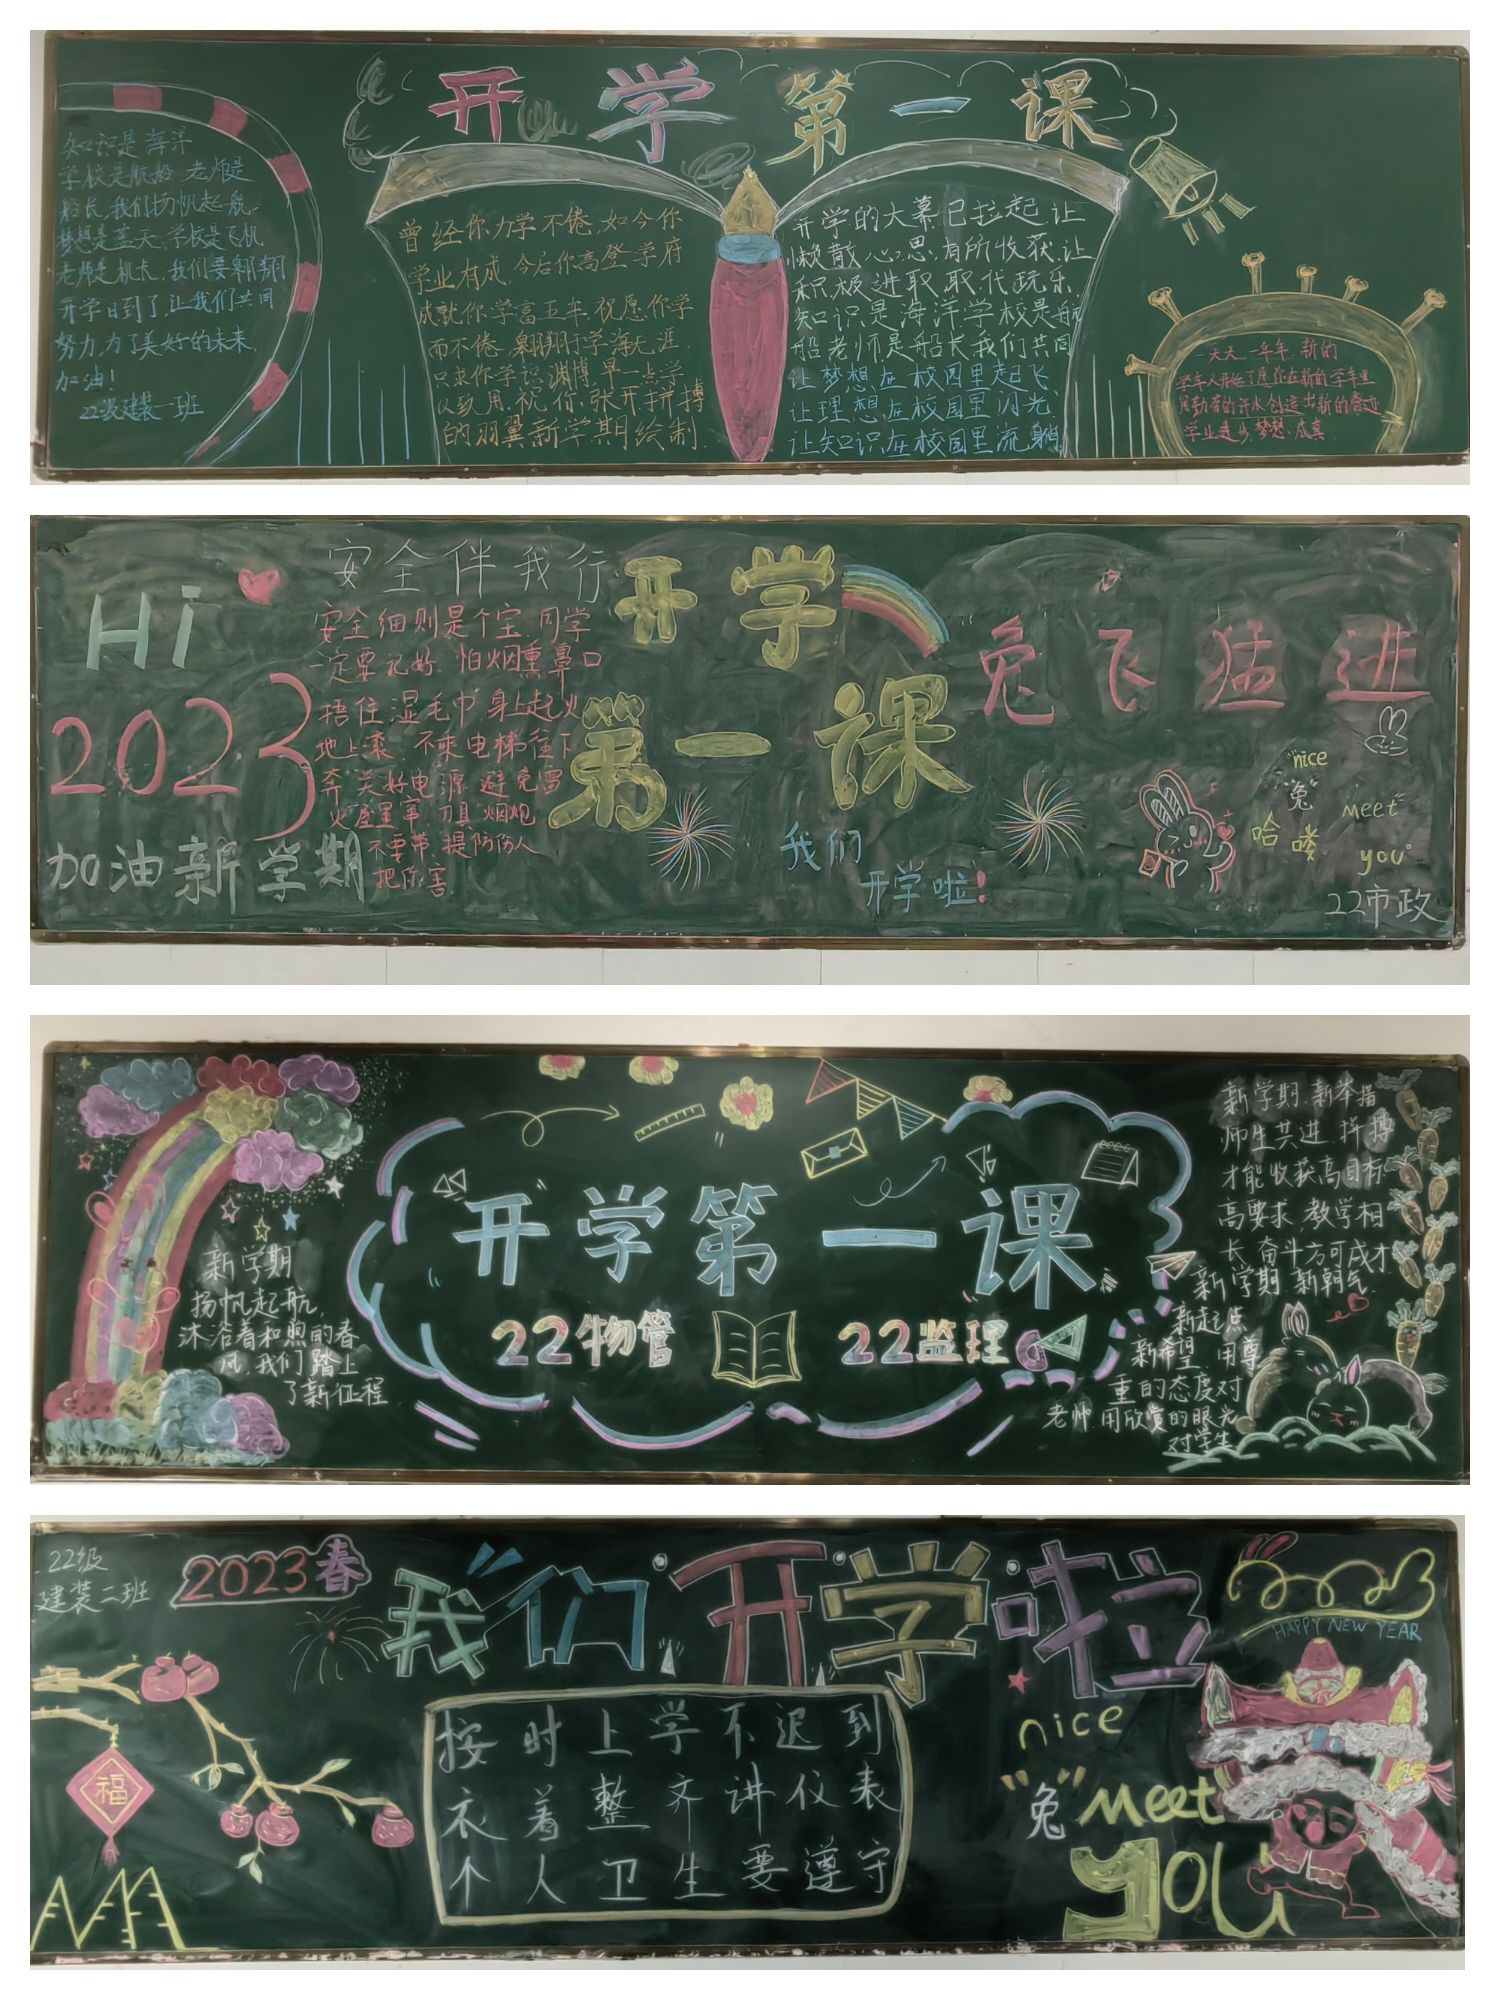 开学第一课
知识是海洋
学校是航船 老师是
船长,我们扬帆起航
梦想是蓝天,学校是飞机
老师是机长,我们要翱翔
开学日到了,让我们共同
努力,为了美好的未来,
加油!
22级建装一班
曾经你力学不倦,如今你
学业有成,今后你高登学府
成就你学富五车,祝愿你学
而不倦,翱翔于学海无涯,
只求你学识渊博,早一点学
以致用,祝你张开拼搏
的羽翼新学期绘制.
开学的大幕已拉起,让
懒散心思有所收获,让
积极进取取代玩乐
知识是海洋,学校是航
船老师是船长我们共同
让梦想在校园里起飞
让理想在校园里闪光,
让知识在校园里流淌
一天天,一年年,新的
学年又开始了愿你在新的学年里
用勤劳的汗水创造出新的奇迹
学业进步,梦想成真
Hi
2023
加油新学期
安全伴我行
安全细则是个宝,同学
一定要记好,怕烟熏鼻口
捂住湿毛巾,身上起火
地上滚,不乘电梯往下
奔,关好电源避免雷
火屋里窜,刀具烟炮
不要带,提防伤人
把你害.
开学
第一课
我们
开学啦!
兔飞猛进
"nice
"兔"
meet
哈喽
you"
22市政
开学第一课
22物管 22监理
新学期
扬帆起航,
沐浴着和煦的春
风,我们踏上
了新征程
新学期,新举措
师生共进,拼搏
才能收获高目标
高要求,教学相
长,奋斗方可成才.
新学期,新朝气.
新起点
新希望,用尊
重的态度对
老师,用欣赏的眼光
对学生
22级
建装二班
2023春
我们开学啦
HAPPY NEW YEAR
福
按时上学不迟到
衣着整齐讲仪表
个人卫生要遵守
nice
"兔"meet
you